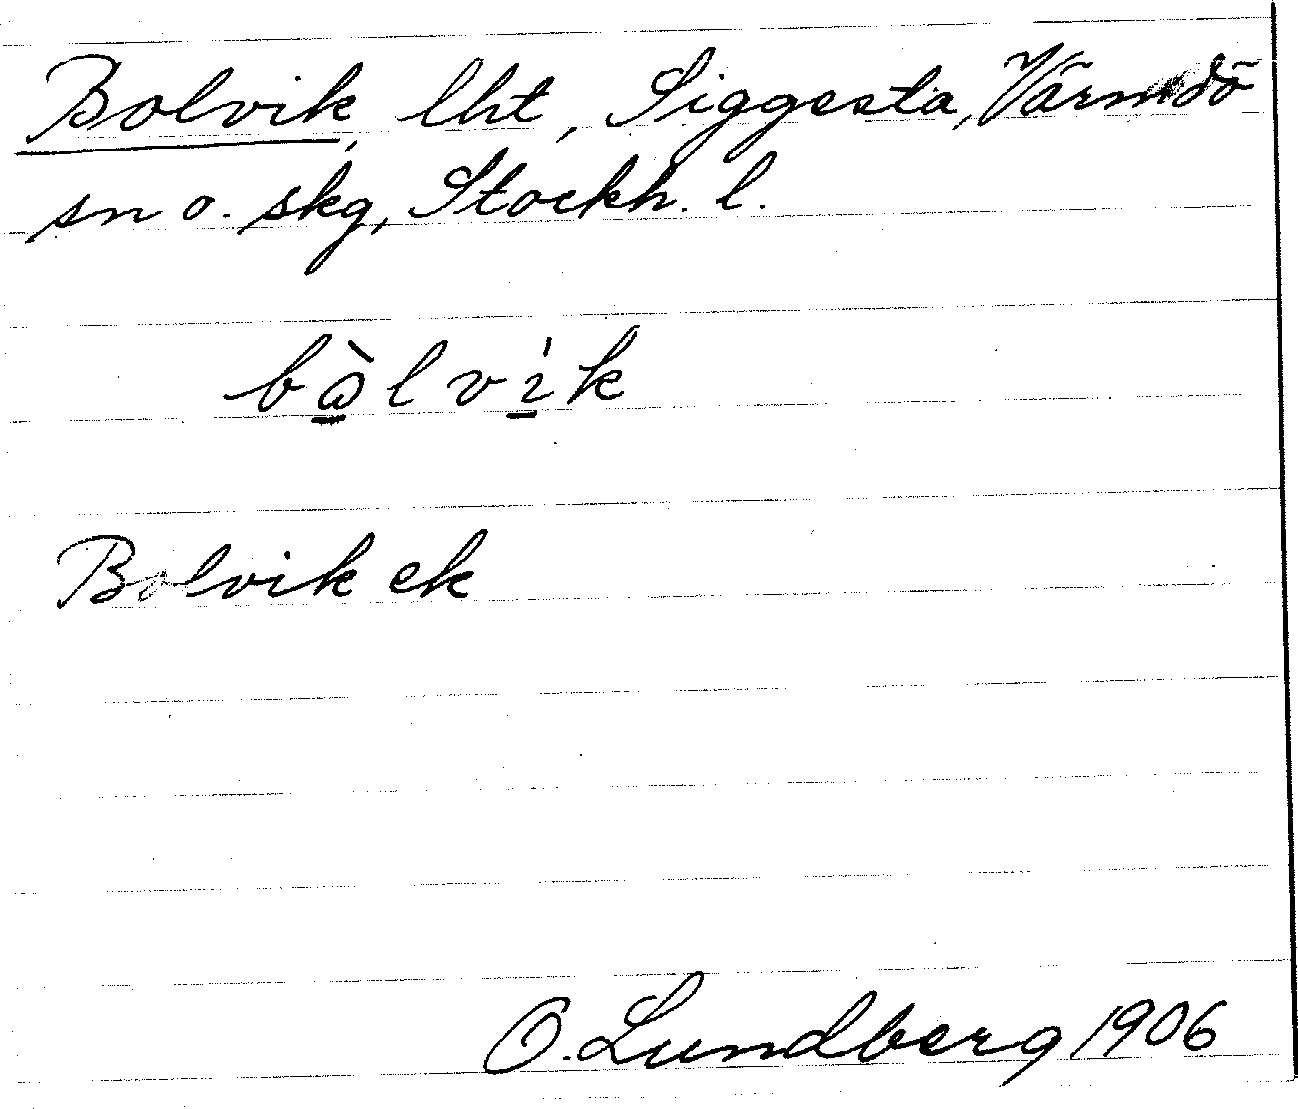 Bolvik, lht, Siggesta, Värmdö
sn o. skg, Stockh. l.
bὼ̲lvı̲̍k
Bolvik ek
O. Lundberg 1906